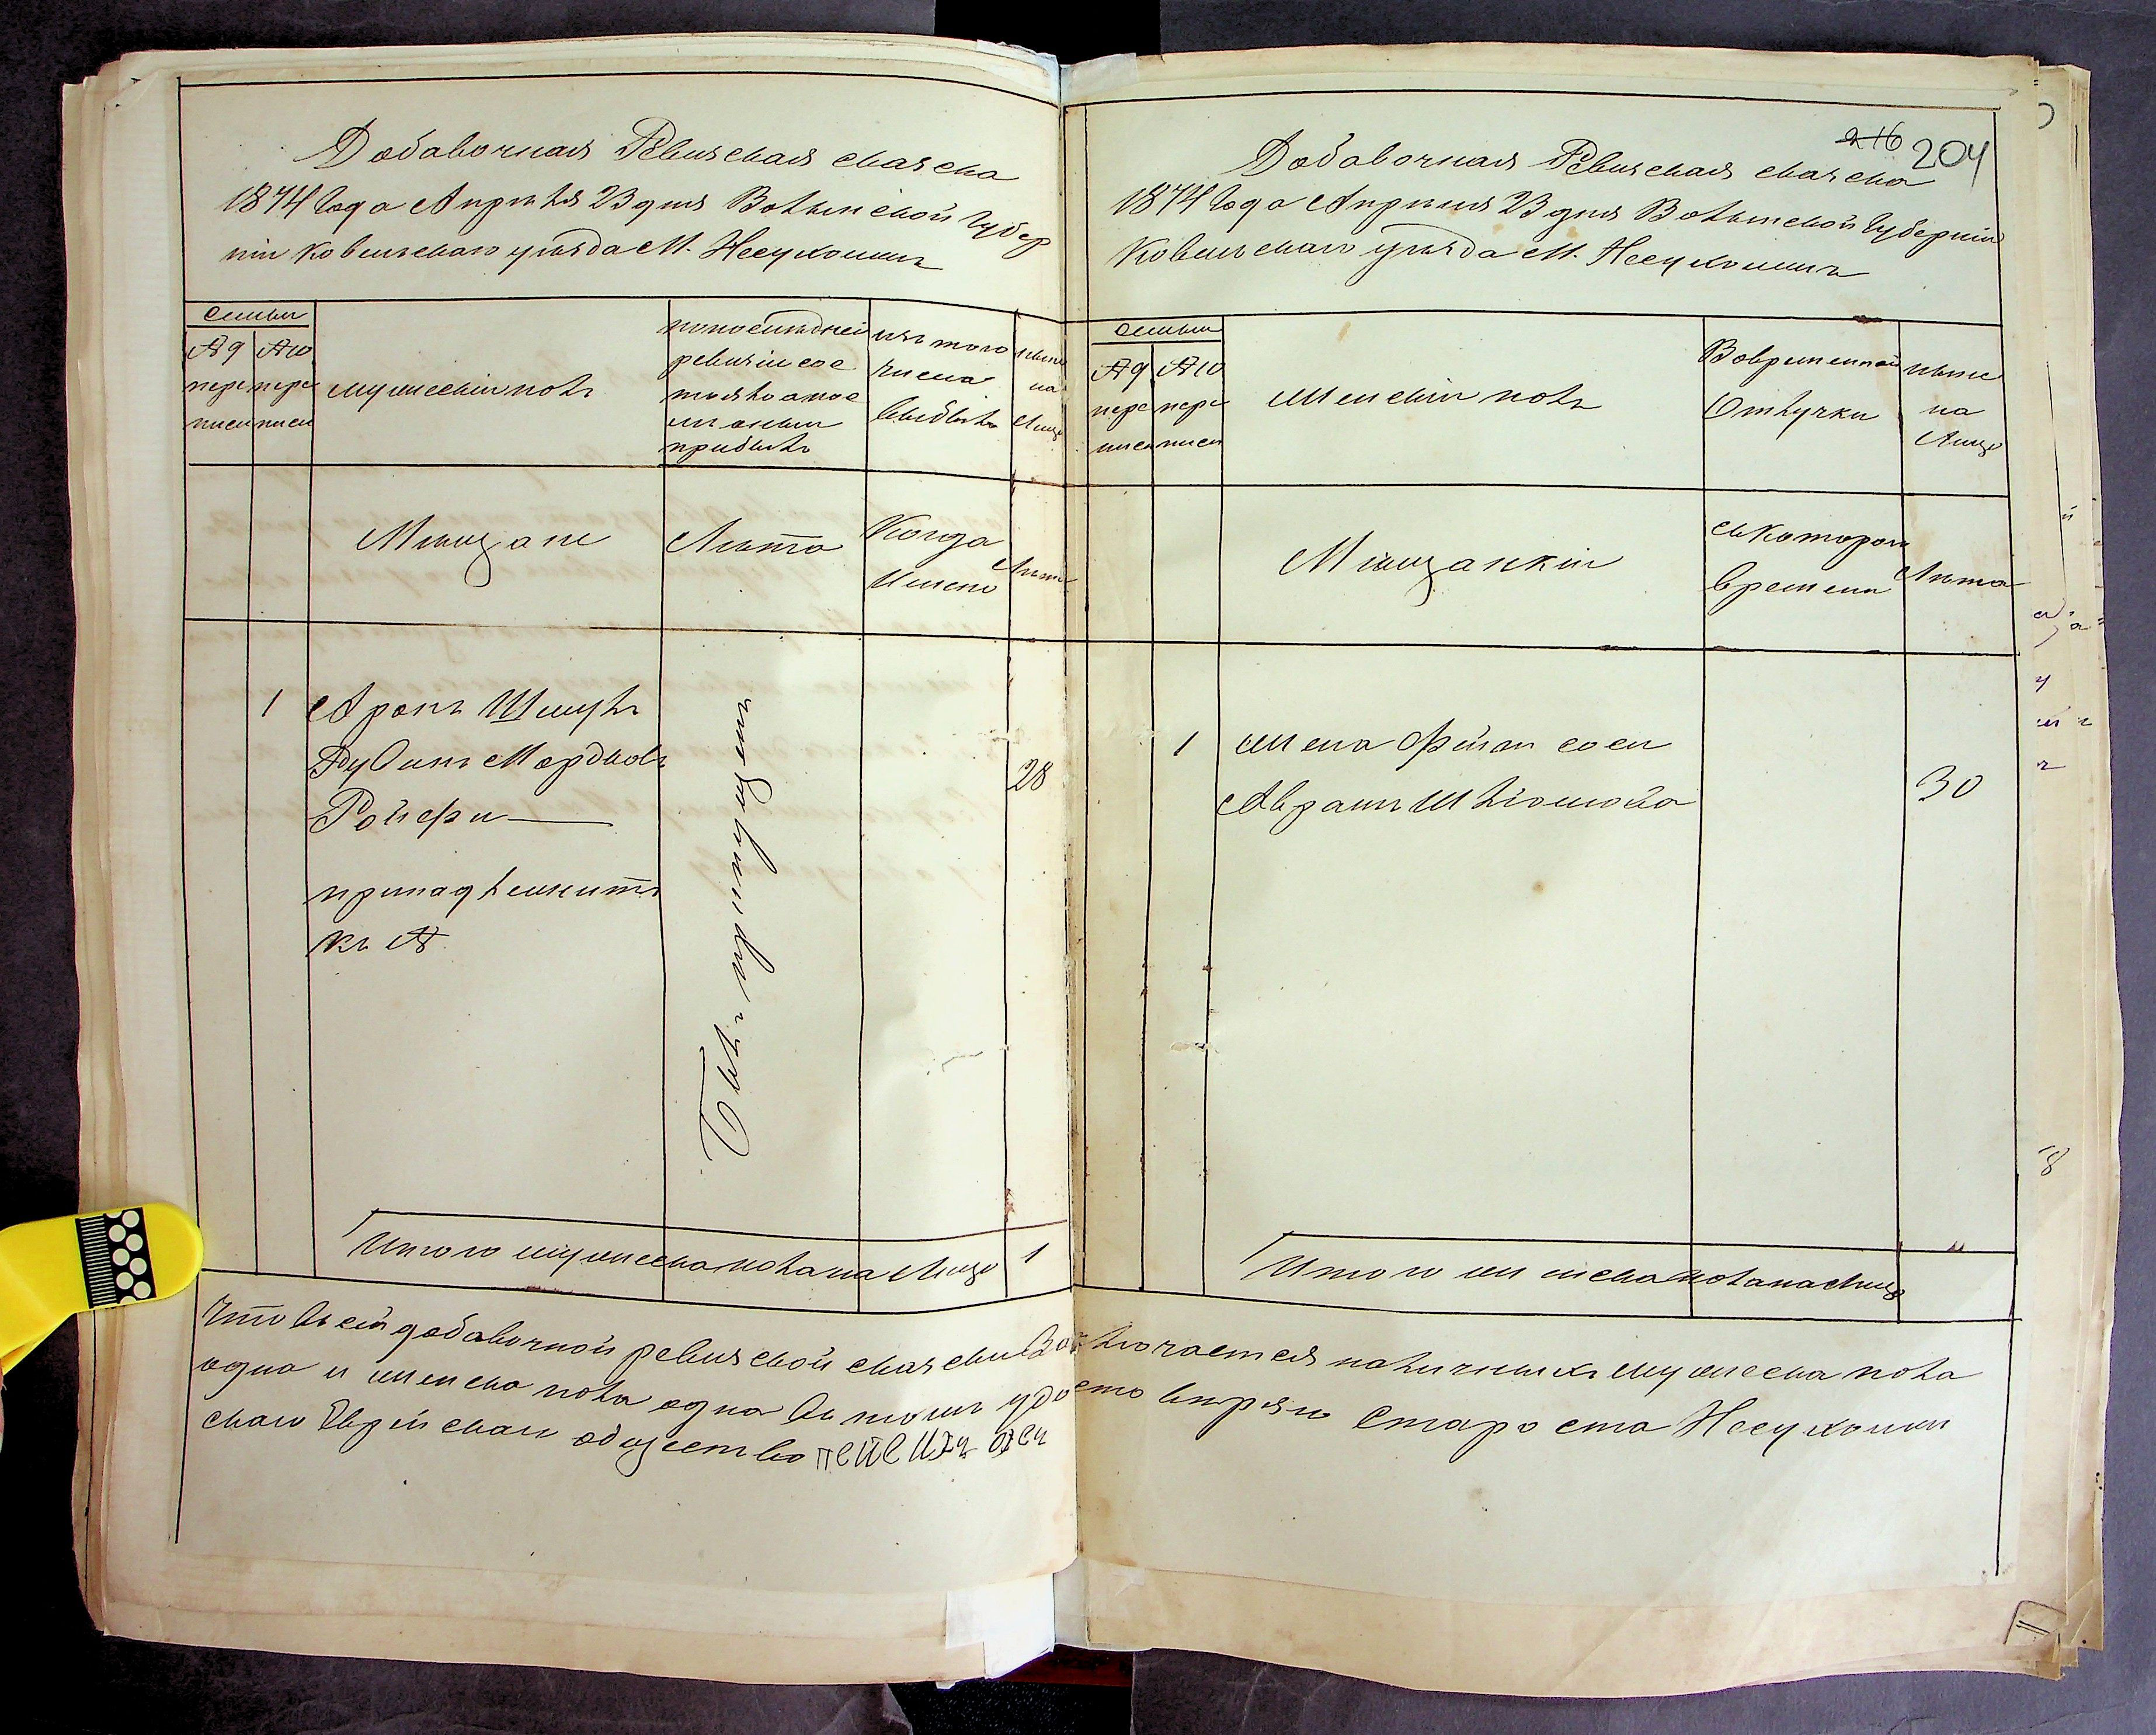 Добавочная Ревизская сказска
1874 Года Апрѣля 23 дня Волынской Губер
ніи Ковельскаго уѣзда М. Несухоижъ
семьи
№ 9 пере писи
№ 10 пере писи
мужескій полъ
по послѣдней ревизіи сос тояло а пос ли оныи прибыло
изъ того числа выбыло
нынѣ на Лицо
Мѣщане
Лѣта
Когда Имено
Лѣта
1 Аронъ Шмулъ
Рубинъ Мордков
Ройфи
принадлежитъ
къ №
28
Былъ пропущенъ
Итого мужеска пола на Лицо 1
216 204
Добавочная Ревизская сказска
1874 Года Апрѣля 23 дня Волынской Губерніи
Ковельскаго уѣзда М. Несухоижъ
семьи
№ 9 пере писи
№ 10 пере писи
Женскій полъ
Во временной Отлучки
нынѣ на Лицо
Мѣщанкіи
съ которого времени
Лѣта
1 жена Фейги
Аврамъ Шліомова
30
Итого женска пола на Лицо
Что въ сей добавочной ревизской сказски Заключается наличныхъ мужеска пола
одна и женска пола одна въ томъ удостовѣряю Староста Несухоиж
скаго Еврейскаго общество